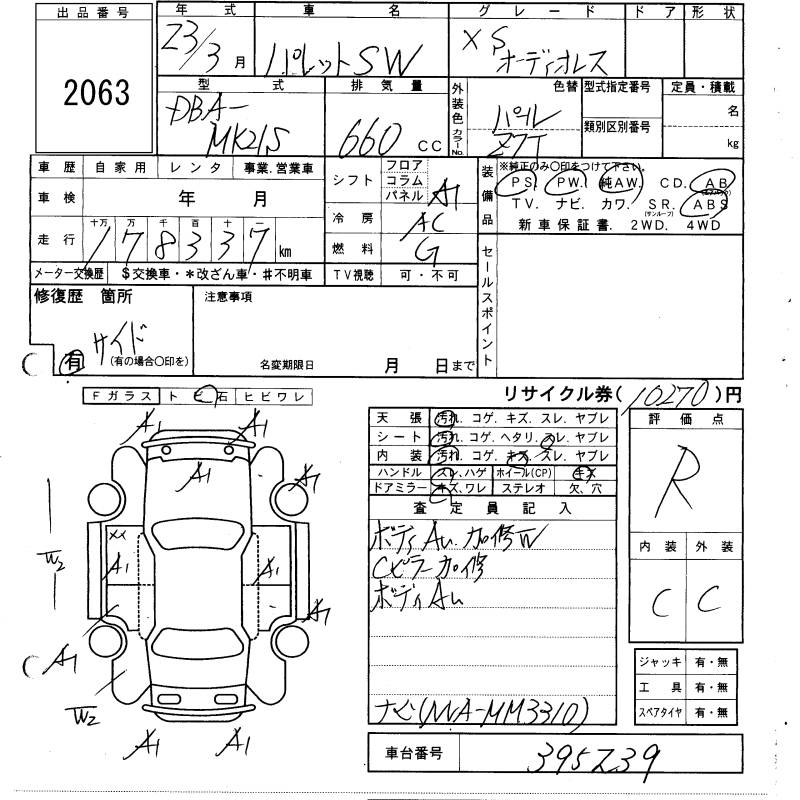 出品番号 年式 車名 グレード ドア 形状
2063 23/3月 パレットSW XS オーディオレス
型式 排気量 外装色 カラーNo. 色替 型式指定番号 定員・積載
DBA-MK21S 660 CC パール Z7T 類別区別番号 名 kg
車歴 自家用 レンタ 事業.営業車
車検 年 月
走行 十万 万 千 百 十 一
178337 km
メーター交換歴 $交換車・*改ざん車・#不明車
シフト フロア コラム パネル A1
冷房 AC
燃料 G
TV視聴 可・不可
装備品 ※純正のみ○印をつけて下さい。
PS. PW. 純AW. CD. AB(エアバック)
TV. ナビ. カワ. SR.(サンルーフ) ABS
新車保証書. 2WD. 4WD
修復歴 箇所 注意事項 セールスポイント
サイド
有 (有の場合○印を)
名変期限日 月 日まで
リサイクル券(10270)円
Fガラス トビ石 ヒビワレ
天張 汚れ. コゲ. キズ. スレ. ヤブレ
シート 汚れ. コゲ. ヘタリ. スレ. ヤブレ
内装 汚れ. コゲ. キズ. スレ. ヤブレ
ハンドル スレ.ハゲ ホイール(CP) キズ
ドアミラー キズ.ワレ ステレオ 欠.穴
評価点
R
内装 外装
C C
査定員記入
ボディAu. 加修W
Cピラー加修
ボディAu
ナビ(NVA-MM3310)
A1 A1
A1 A1
XX
W2 A1 A1
A1
A1
W2
A1 A1
ジャッキ 有・無
工具 有・無
スペアタイヤ 有・無
車台番号 395239